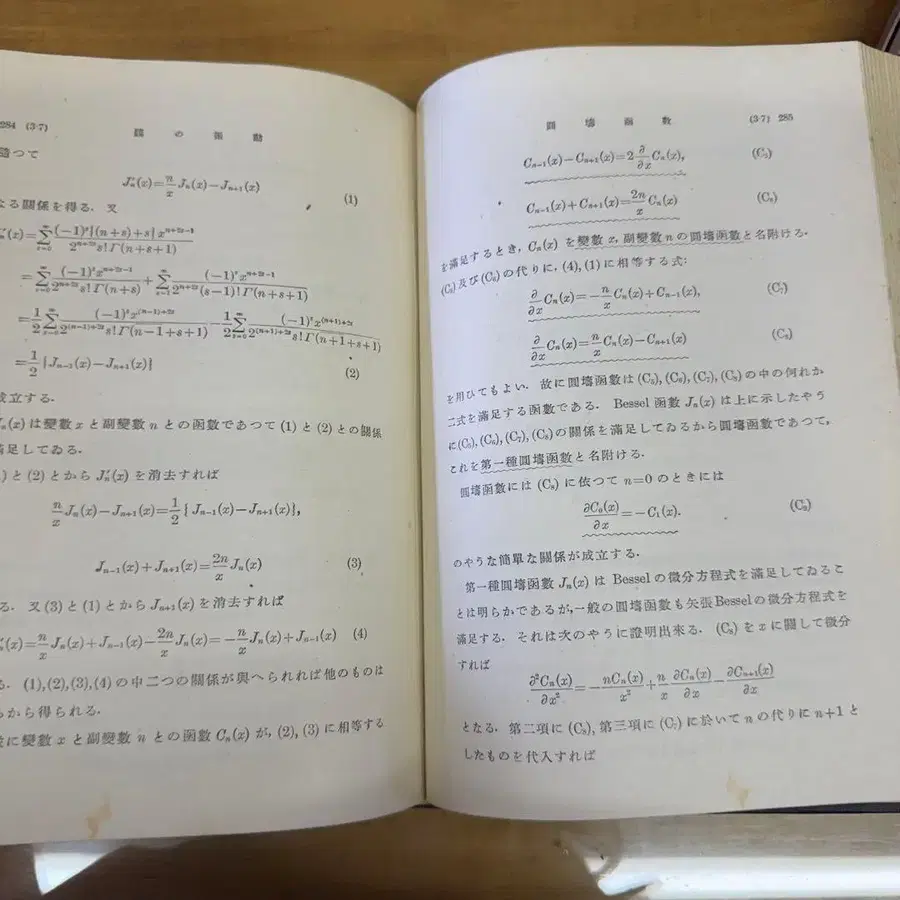 284 (3·7)
の 振 動
つて
J′ₙ(x)=n/x Jₙ(x)−Jₙ₊₁(x) (1)
なる關係を得る. 又
′(x)=∑_{s=0}^{∞} (−1)ˢ{(n+s)+s}xⁿ⁺²ˢ⁻¹/2ⁿ⁺²ˢs!Γ(n+s+1)
=∑_{s=0}^{∞} (−1)ˢxⁿ⁺²ˢ⁻¹/2ⁿ⁺²ˢs!Γ(n+s)+∑_{s=1}^{∞} (−1)ˢxⁿ⁺²ˢ⁻¹/2ⁿ⁺²ˢ(s−1)!Γ(n+s+1)
=1/2∑_{s=0}^{∞} (−1)ˢx⁽ⁿ⁻¹⁾⁺²ˢ/2⁽ⁿ⁻¹⁾⁺²ˢs!Γ(n−1+s+1)−1/2∑_{s=0}^{∞} (−1)ˢx⁽ⁿ⁺¹⁾⁺²ˢ/2⁽ⁿ⁺¹⁾⁺²ˢs!Γ(n+1+s+1)
=1/2{Jₙ₋₁(x)−Jₙ₊₁(x)} (2)
成立する.
Jₙ(x) は變數 x と副變數 n との函數であつて (1) と (2) との關係
滿足してゐる.
) と (2) とから J′ₙ(x) を消去すれば
n/x Jₙ(x)−Jₙ₊₁(x)=1/2{Jₙ₋₁(x)−Jₙ₊₁(x)},
Jₙ₋₁(x)+Jₙ₊₁(x)=2n/x Jₙ(x) (3)
る. 又 (3) と (1) とから Jₙ₊₁(x) を消去すれば
′(x)=n/x Jₙ(x)+Jₙ₋₁(x)−2n/x Jₙ(x)=−n/x Jₙ(x)+Jₙ₋₁(x) (4)
る. (1),(2),(3),(4) の中二つの關係が與へられれば他のものは
から得られる.
に變數 x と副變數 n との函數 Cₙ(x) が, (2), (3) に相等する
圓 壔 函 數
(3·7) 285
Cₙ₋₁(x)−Cₙ₊₁(x)=2 ∂/∂x Cₙ(x), (C₅)
Cₙ₋₁(x)+Cₙ₊₁(x)=2n/x Cₙ(x) (C₆)
を滿足するとき, Cₙ(x) を變數 x, 副變數 n の圓壔函數と名附ける.
(C₅)及び(C₆)の代りに, (4), (1) に相等する式:
∂/∂x Cₙ(x)=−n/x Cₙ(x)+Cₙ₋₁(x), (C₇)
∂/∂x Cₙ(x)=n/x Cₙ(x)−Cₙ₊₁(x) (C₈)
を用ひてもよい. 故に圓壔函數は (C₅), (C₆), (C₇), (C₈) の中の何れか
二式を滿足する函數である. Bessel 函數 Jₙ(x) は上に示したやう
に(C₅), (C₆), (C₇), (C₈)の關係を滿足してゐるから圓壔函數であつて,
これを第一種圓壔函數と名附ける.
圓壔函數には (C₈) に依つて n=0 のときには
∂C₀(x)/∂x=−C₁(x). (C₉)
のやうな簡單な關係が成立する.
第一種圓壔函數 Jₙ(x) は Bessel の微分方程式を滿足してゐるこ
とは明らかであるが,一般の圓壔函數も矢張Besselの微分方程式を
滿足する. それは次のやうに證明出來る. (C₈) を x に關して微分
すれば
∂²Cₙ(x)/∂x²=−nCₙ(x)/x²+n/x ∂Cₙ(x)/∂x−∂Cₙ₊₁(x)/∂x
となる. 第二項に (C₈), 第三項に (C₇) に於いて n の代りに n+1 と
したものを代入すれば